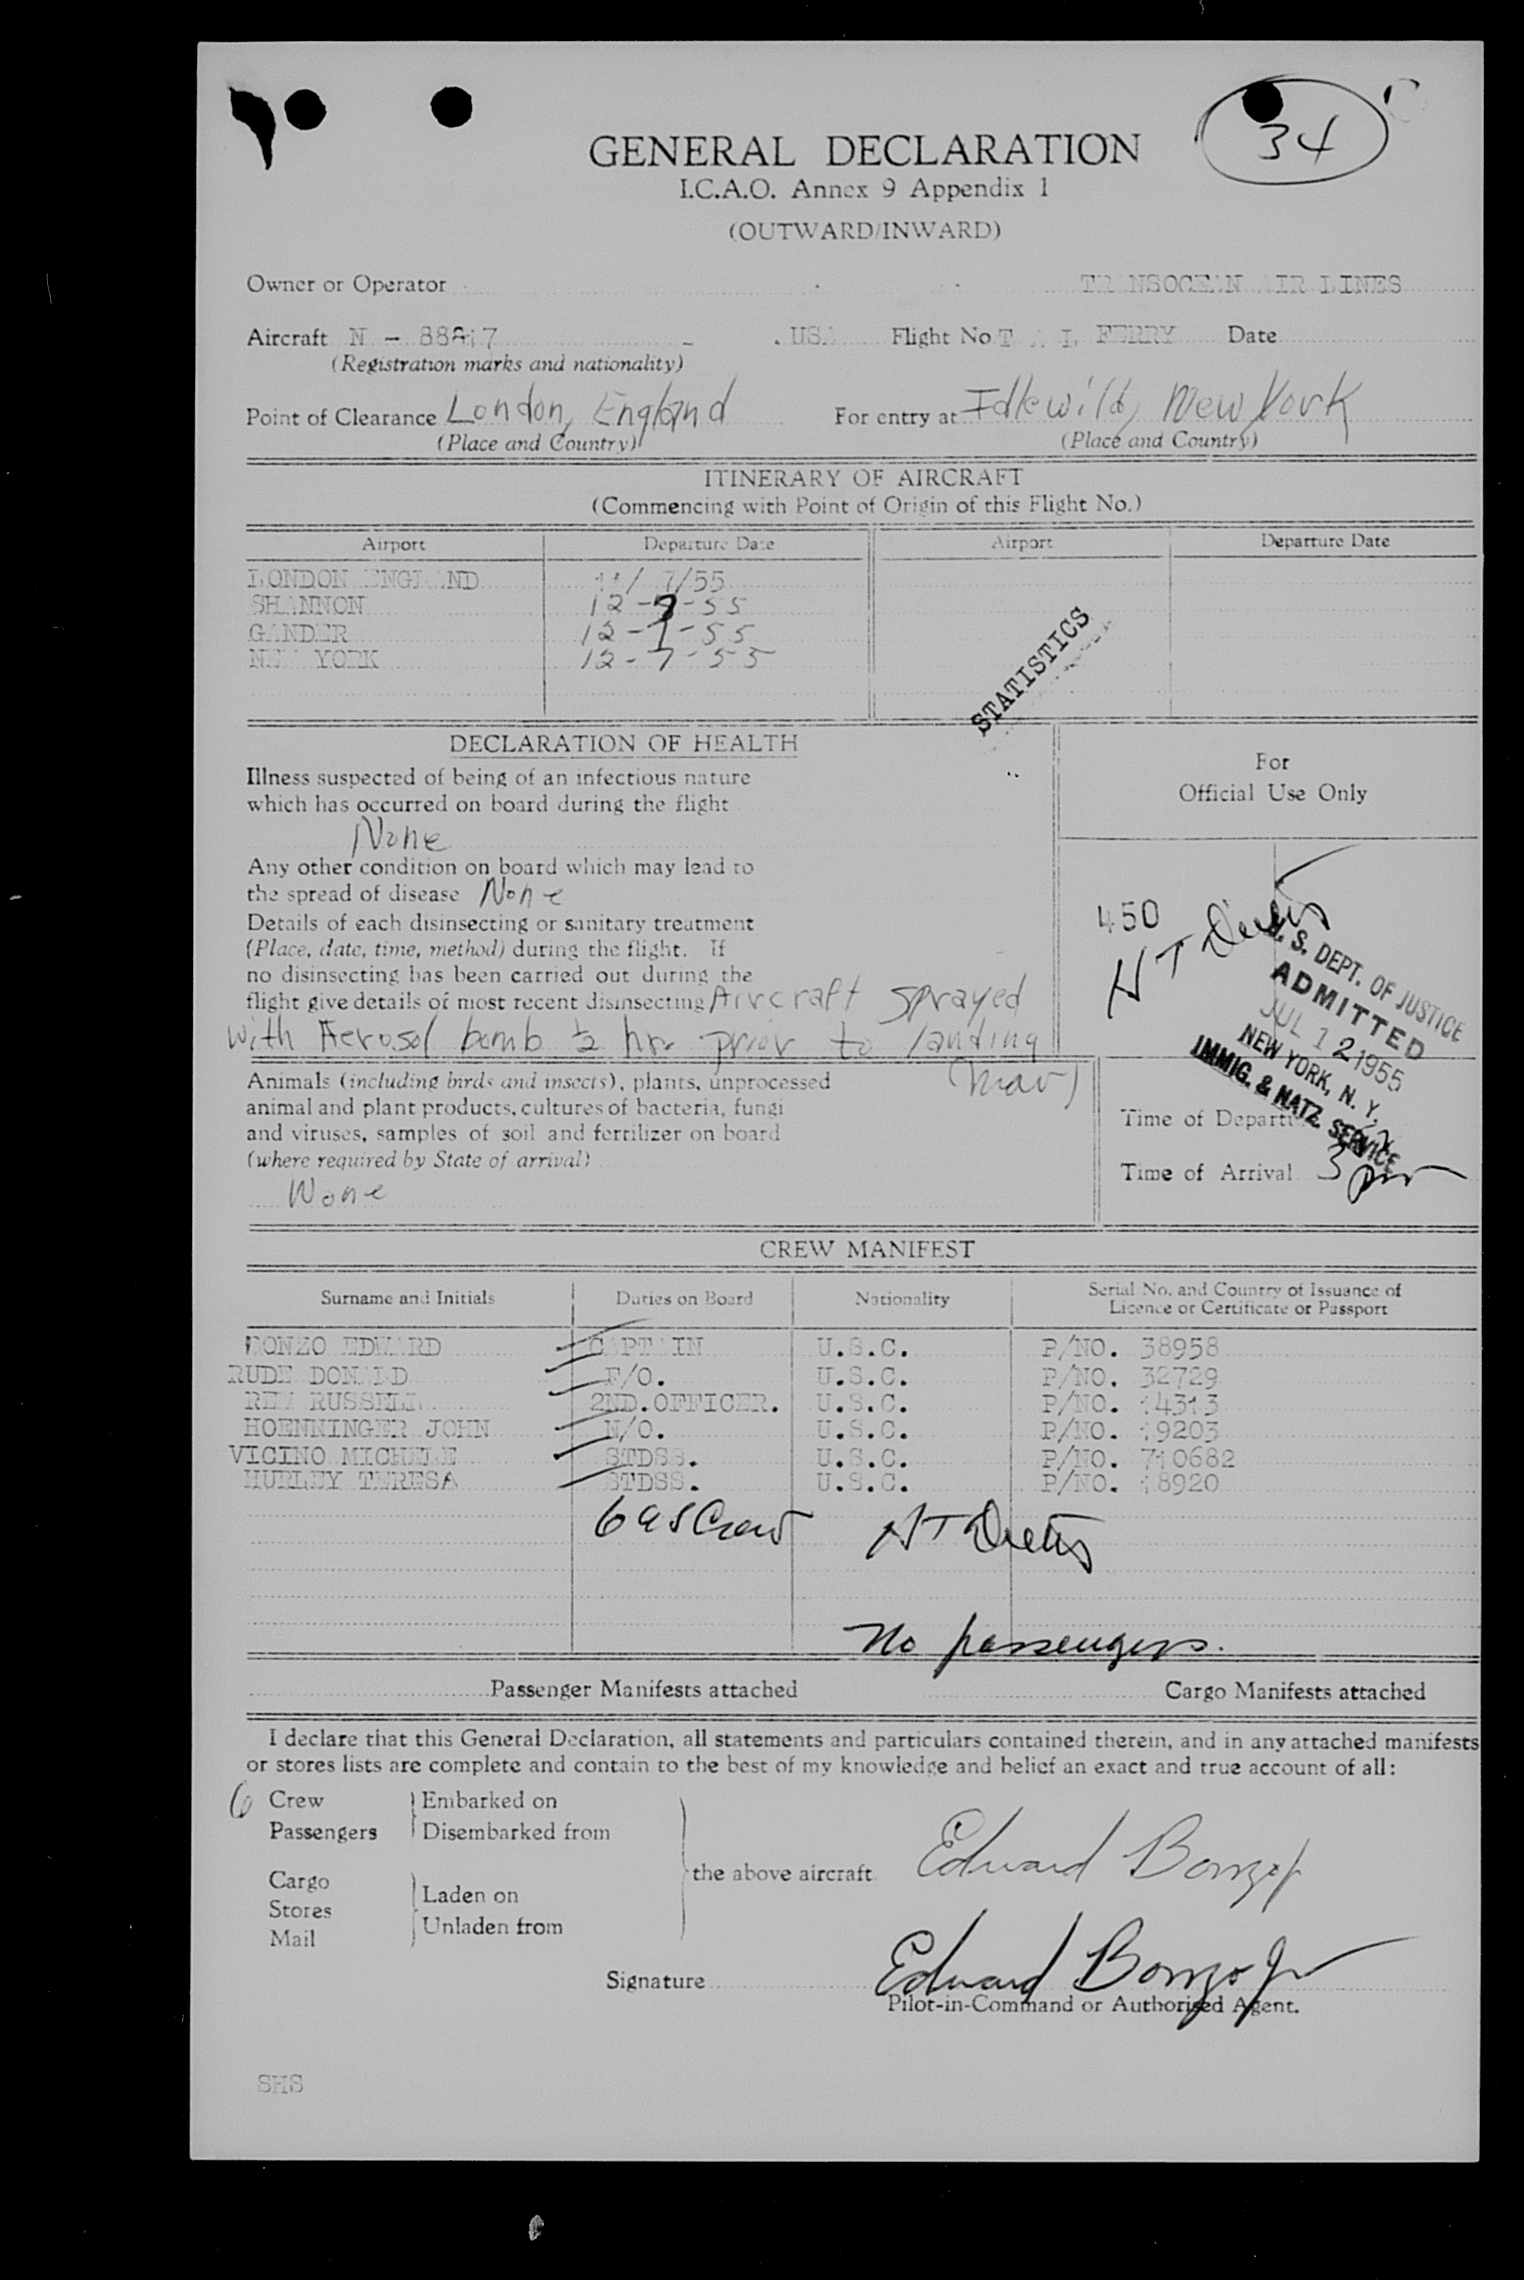 34
GENERAL DECLARATION
I.C.A.O. Annex 9 Appendix 1
(OUTWARD/INWARD)
Owner or Operator TRANSOCEAN AIR LINES
Aircraft N - USA Flight No. T A L FERRY Date
(Registration marks and nationality)
Point of Clearance London, England For entry at Idlewild, New York
(Place and Country) (Place and Country)
ITINERARY OF AIRCRAFT
(Commencing with Point of Origin of this Flight No.)
Airport Departure Date Airport Departure Date
LONDON ENGLAND 11/ 7/55
SHANNON 12-7-55
GANDER 12-7-55
NEW YORK 12-7-55
STATISTICS
DECLARATION OF HEALTH
Illness suspected of being of an infectious nature
which has occurred on board during the flight
None
Any other condition on board which may lead to
the spread of disease None
Details of each disinsecting or sanitary treatment
(Place, date, time, method) during the flight. If
no disinsecting has been carried out during the
flight give details of most recent disinsecting Aircraft sprayed
with Aerosol bomb ½ hr. prior to landing
Animals (including birds and insects), plants, unprocessed
animal and plant products, cultures of bacteria, fungi
and viruses, samples of soil and fertilizer on board
(where required by State of arrival)
None
For
Official Use Only
450
U. S. DEPT. OF JUSTICE
ADMITTED
JUL 12 1955
NEW YORK, N. Y.
IMMIG. & NATZ. SERVICE
Time of Departure
Time of Arrival 3 pm
CREW MANIFEST
Surname and Initials Duties on Board Nationality Serial No. and Country of Issuance of
Licence or Certificate or Passport
BONZO EDWARD CAPTAIN U.S.C. P/NO. 38958
RUDE DONALD F/O. U.S.C. P/NO. 32729
REW RUSSELL 2ND.OFFICER. U.S.C. P/NO. 14313
HOENNINGER JOHN N/O. U.S.C. P/NO. 19203
VICINO MICHELE STDSS. U.S.C. P/NO. 710682
HURLEY TERESA STDSS. U.S.C. P/NO. 18920
6 Crew
No passengers.
Passenger Manifests attached Cargo Manifests attached
I declare that this General Declaration, all statements and particulars contained therein, and in any attached manifests
or stores lists are complete and contain to the best of my knowledge and belief an exact and true account of all:
6 Crew Embarked on
Passengers Disembarked from
the above aircraft Edward Bonzo Jr
Cargo
Laden on
Stores
Unladen from
Mail
Signature Edward Bonzo Jr
Pilot-in-Command or Authorised Agent.
SHS